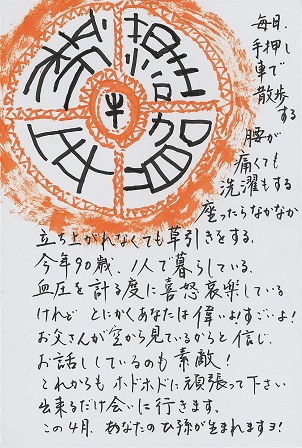 毎日、
手押し
車で
散歩
する
腰が
痛くても
洗濯もする
座ったらなかなか
立ち上がれなくても草引きをする。
今年90歳、1人で暮らしている。
血圧を計る度に喜怒哀楽している
けれど とにかくあなたは偉いよ!すごいよ!
お父さんが空から見ているからと信じ、
お話ししているのも素敵!
これからもホドホドに頑張って下さい
出来るだけ会いに行きます。
この4月、あなたのひ孫が生まれますヨ!